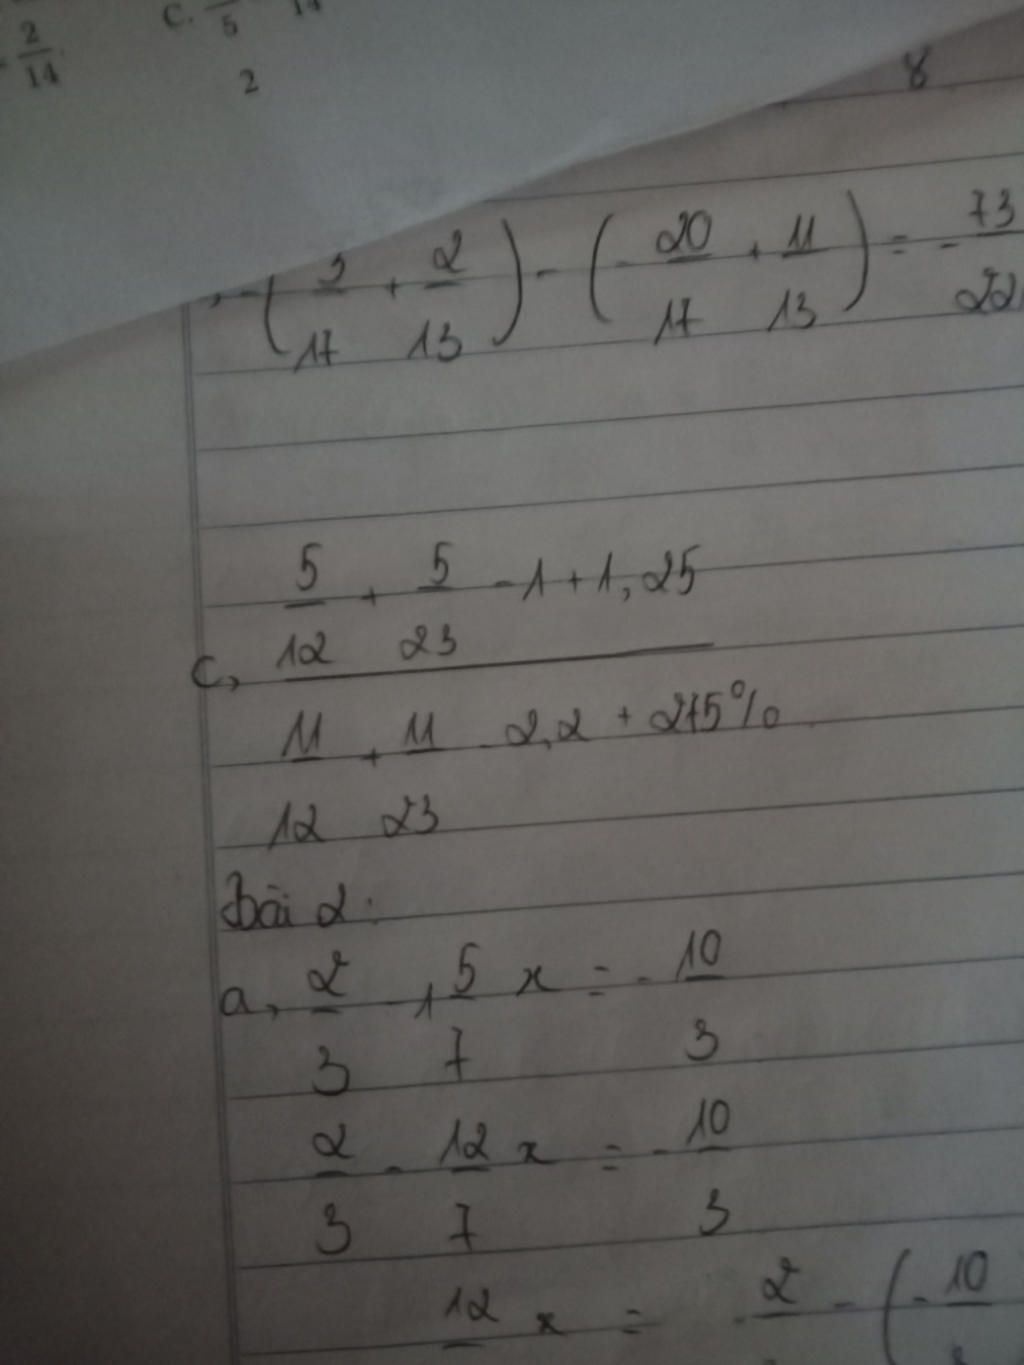 2/14
C. /5 14
2
8
-(3/17 + 2/13) - (-20/17 + 11/13) = -73/22
c, (5/12 + 5/23 - 1 + 1,25) / (11/12 + 11/23 - 2,2 + 275%)
bài 2:
a, 2/3 - 1 5/7 x = -10/3
2/3 - 12/7 x = -10/3
12 x = 2 - (-10